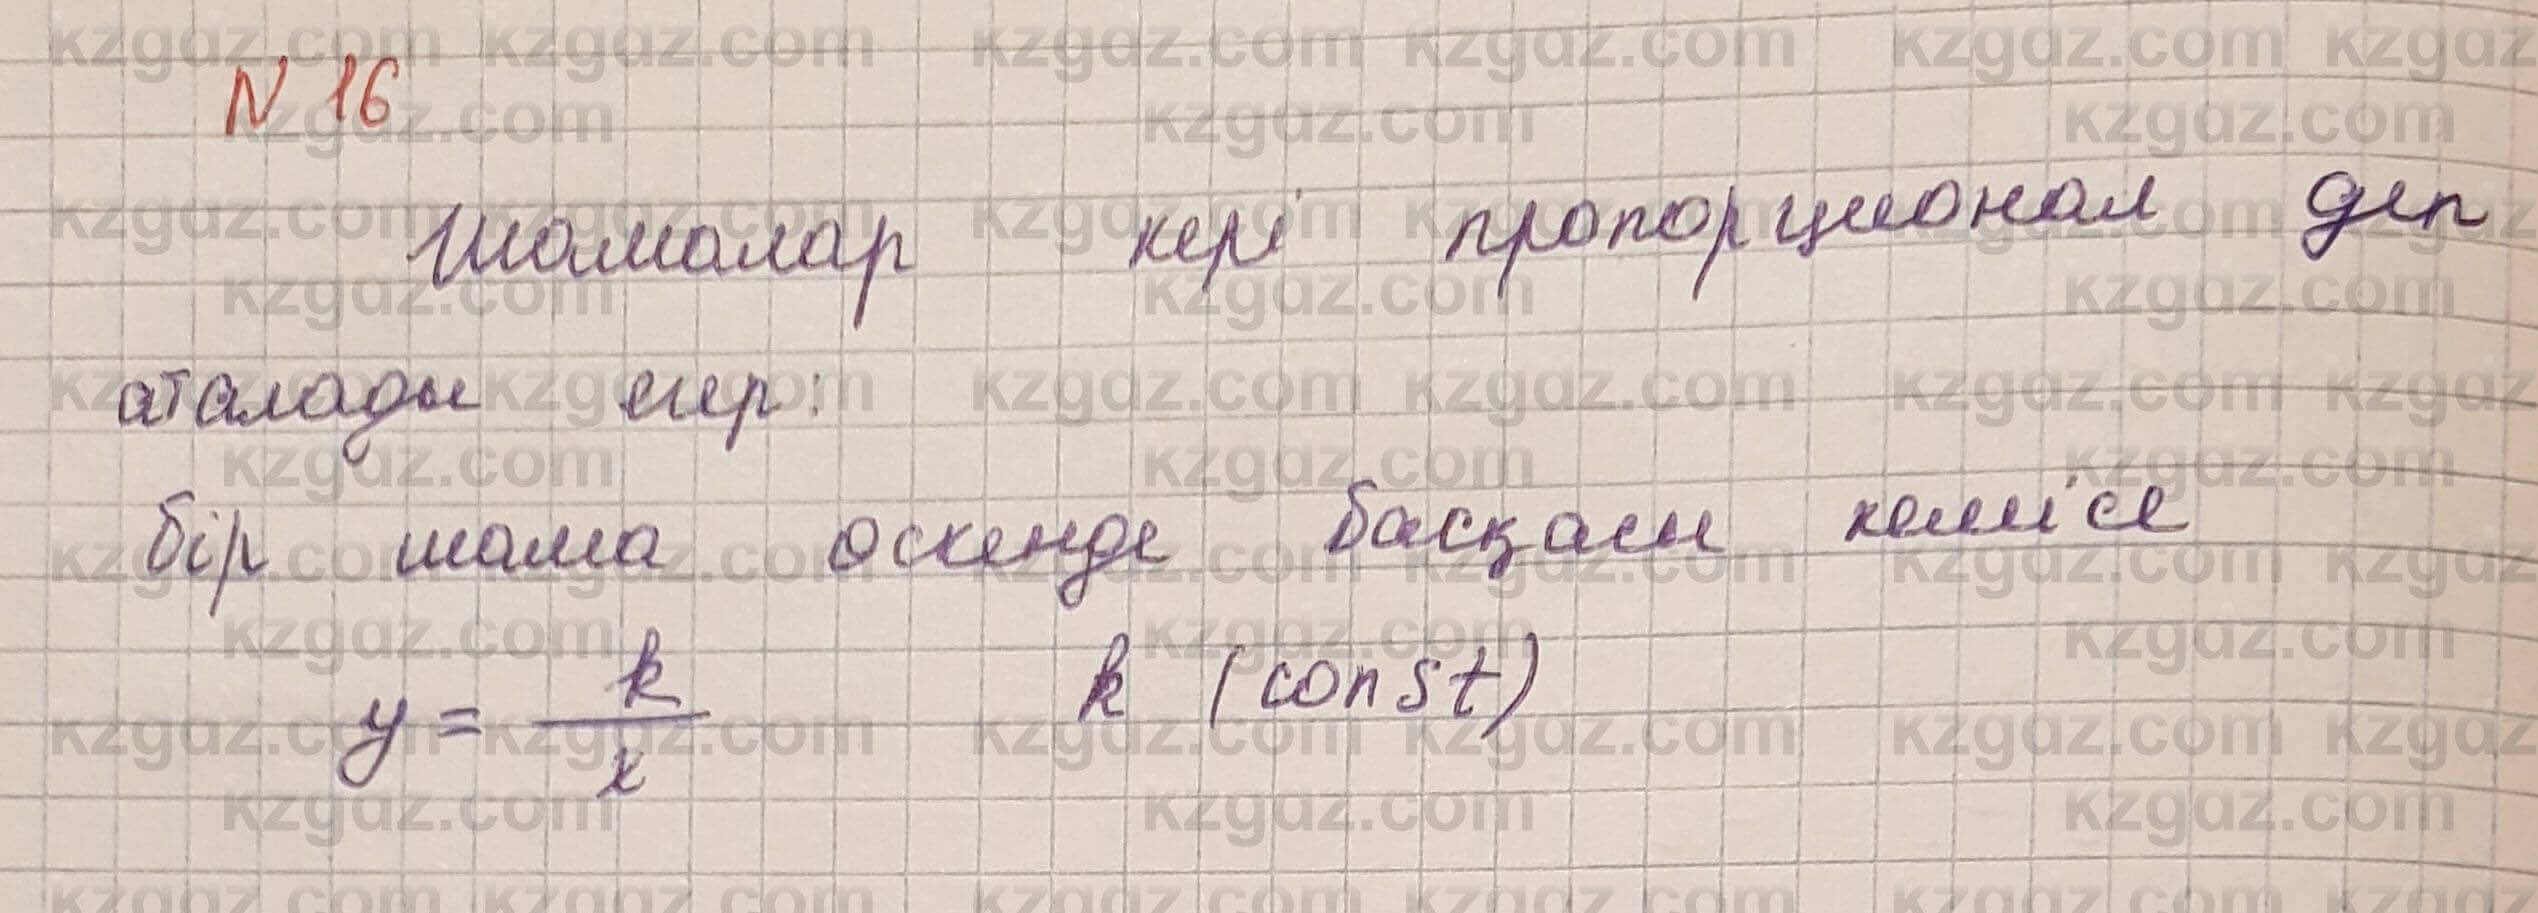 N 16
Шамалар кері пропорционал деп
аталады егер:
бір шама өскенде басқасы кемісе
y = k/x k (const)
kzgdz.com